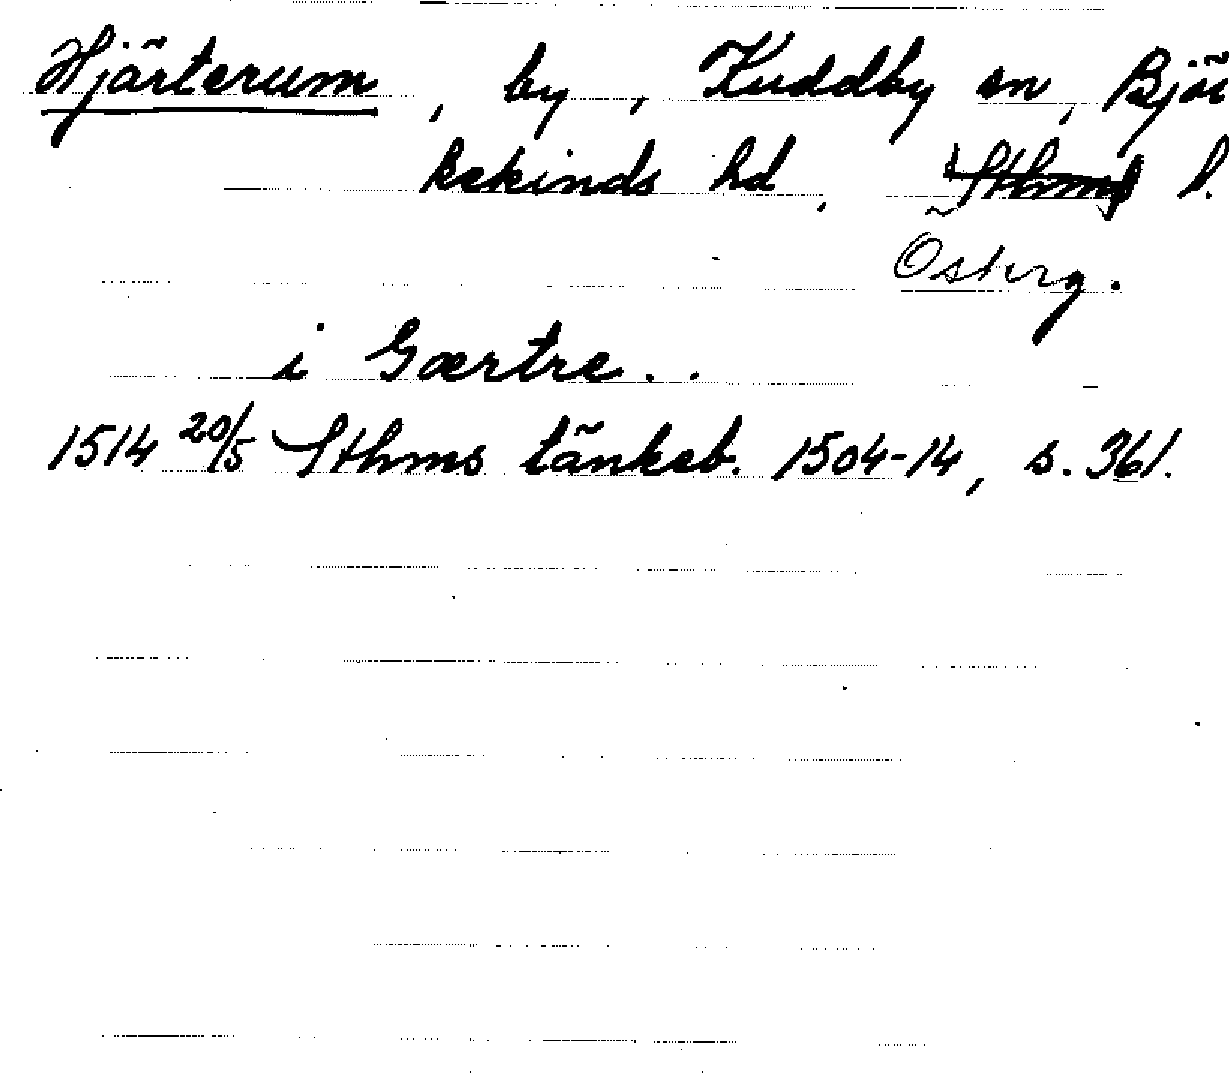 Hjärterum, by, Kuddby sn, Bjär
kekinds hd, Sthms l.
Österg.
i Gærtre..
1514 20/5 Sthms tänkeb. 1504-14, s. 361.